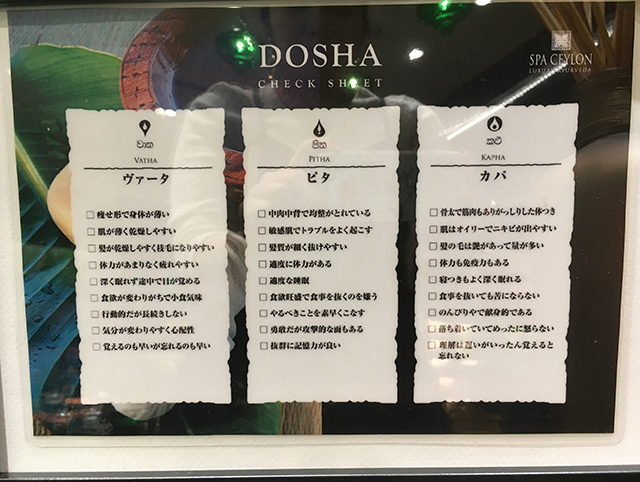 DOSHA
CHECK SHEET
SPA CEYLON
LUXURY AYURVEDA
වාත
VATHA
ヴァータ
□ 痩せ形で身体が薄い
□ 肌が薄く乾燥しやすい
□ 髪が乾燥しやすく枝毛になりやすい
□ 体力があまりなく疲れやすい
□ 深く眠れず途中で目が覚める
□ 食欲が変わりがちで小食気味
□ 行動的だが長続きしない
□ 気分が変わりやすく心配性
□ 覚えるのも早いが忘れるのも早い
පිත
PITHA
ピタ
□ 中肉中背で均整がとれている
□ 敏感肌でトラブルをよく起こす
□ 髪質が細く抜けやすい
□ 適度に体力がある
□ 適度な睡眠
□ 食欲旺盛で食事を抜くのを嫌う
□ やるべきことを素早くこなす
□ 勇敢だが攻撃的な面もある
□ 抜群に記憶力が良い
කඵ
KAPHA
カパ
□ 骨太で筋肉もありがっしりした体つき
□ 肌はオイリーでニキビが出やすい
□ 髪の毛は艶があって量が多い
□ 体力も免疫力もある
□ 寝つきもよく深く眠れる
□ 食事を抜いても苦にならない
□ のんびりやで献身的である
□ 落ち着いていてめったに怒らない
□ 理解は遅いがいったん覚えると
忘れない